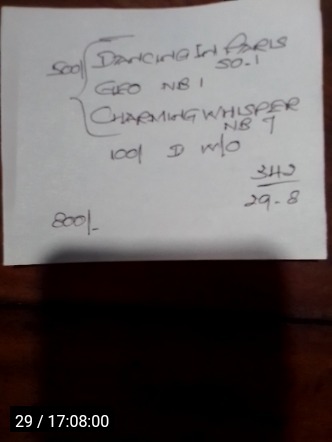 500/ DANCING IN PARIS
SO.1
GEO NB 1
CHARMING WHISPER
NB 7
100/ D W/O
342
29-8
800/-
29 / 17:08:00